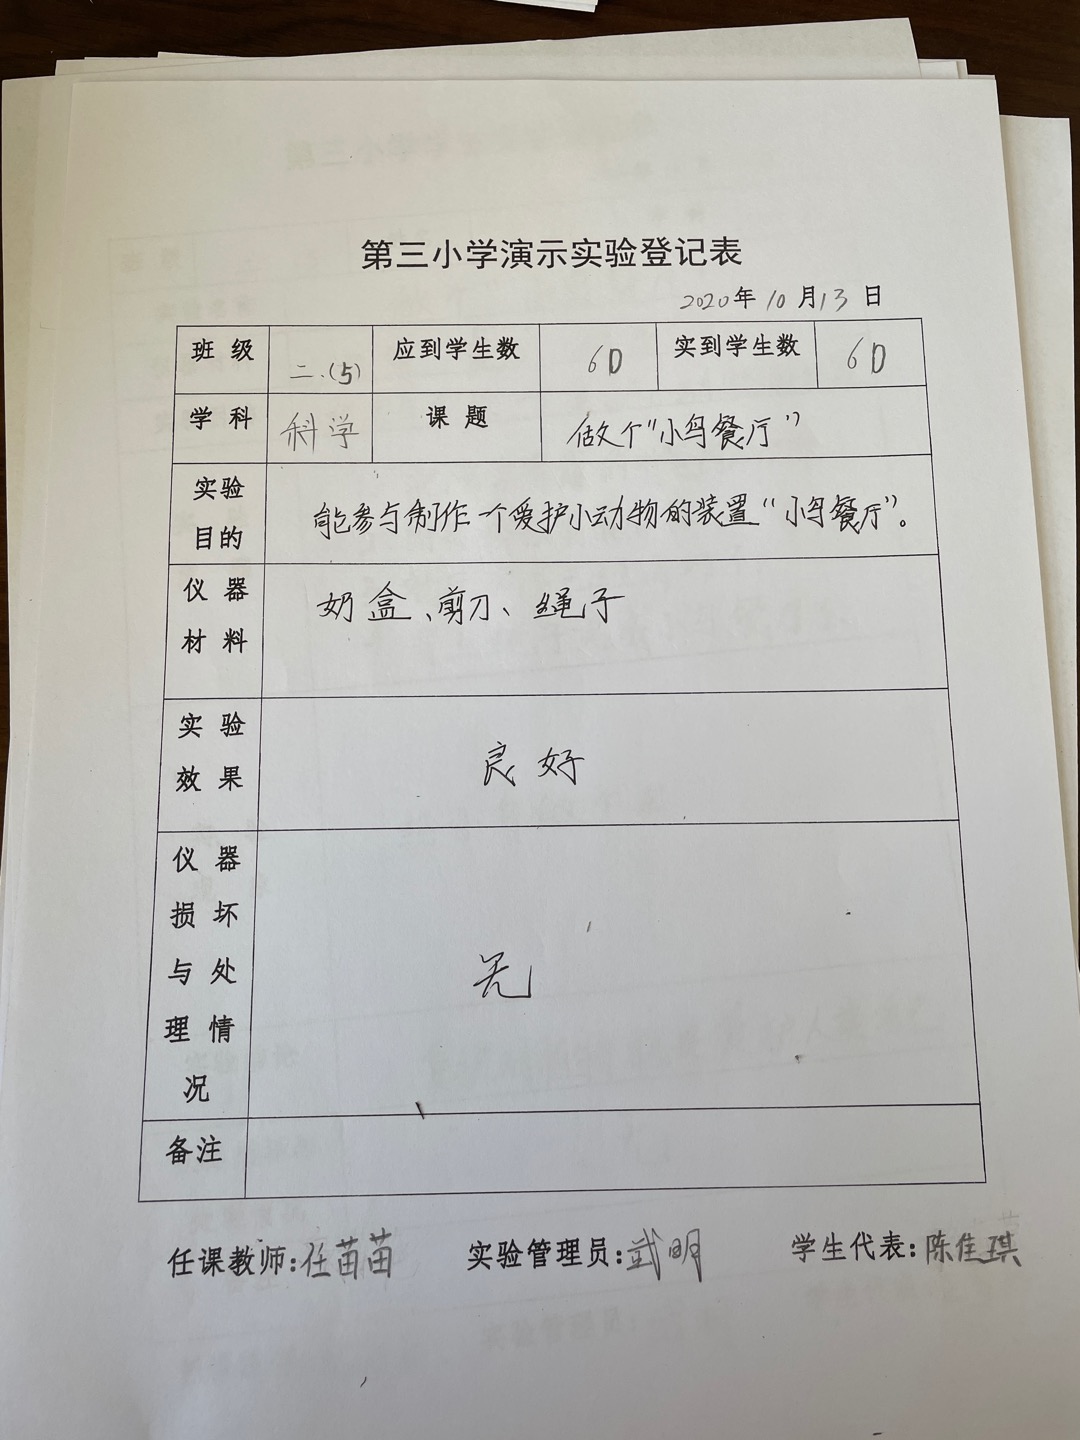 第三小学演示实验登记表
2020年10月13日
班级 二.(5) 应到学生数 60 实到学生数 60
学科 科学 课题 做个“小鸟餐厅”
实验
目的
能参与制作一个爱护小动物的装置“小鸟餐厅”。
仪器
材料
奶盒、剪刀、绳子
实验
效果
良好
仪器
损坏
与处
理情
况
无
备注
任课教师:任苗苗 实验管理员:武明 学生代表:陈佳琪